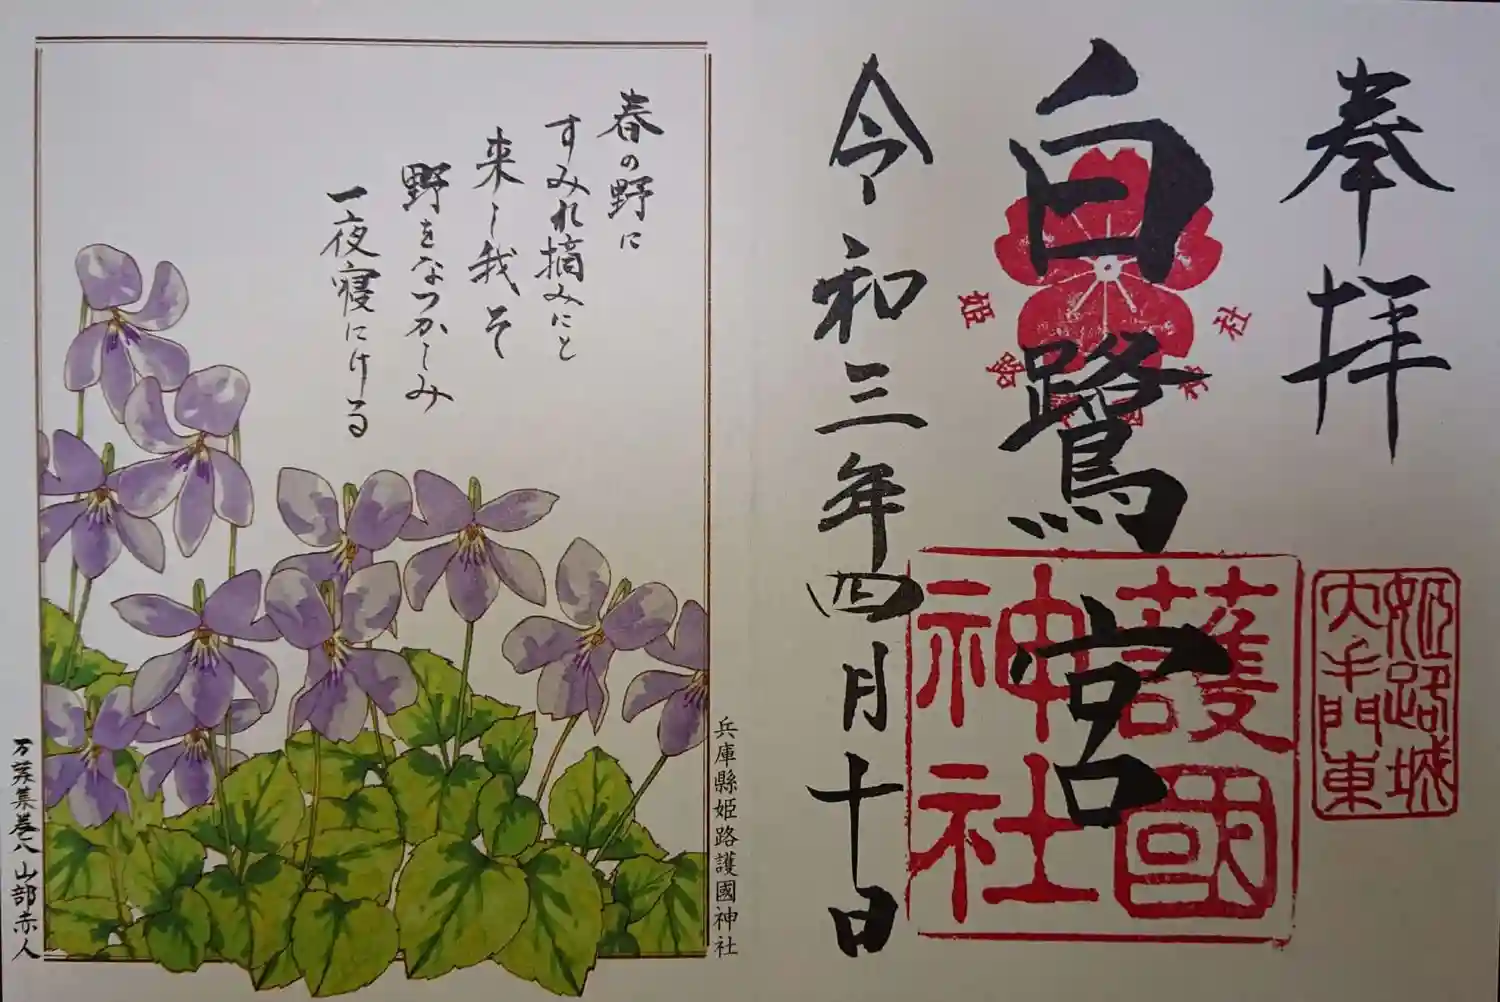 奉拝
白鷺宮
令和三年四月十日
姫路城
大手門東
護國
神社
春の野に
すみれ摘みにと
来し我そ
野をなつかしみ
一夜寝にける
兵庫縣姫路護國神社
万葉集巻八 山部赤人